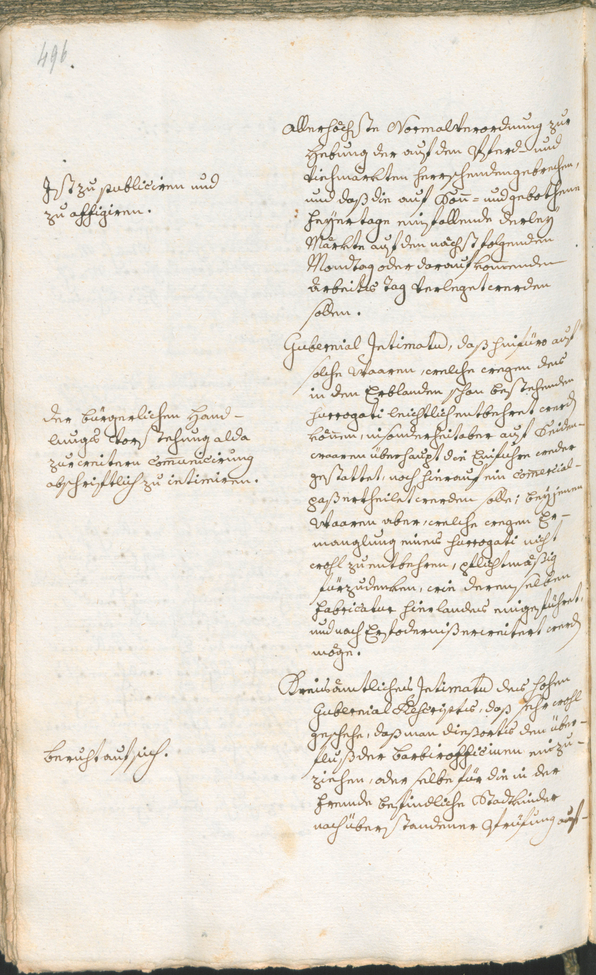 496.
Ist zu publiciren und
zu affigiren.
Allerhöchste Normalverordnung zur
Hebung der auf den Pferd- und
Viehmärkten herrschenden gebrechen,
und daß die auf Son- und gebothene
Feyertage einfallende derley
Märkte auf den nächst folgenden
Monttag oder darauf komenden
Arbeits Tag verleget werden
sollen.
Der bürgerlichen Hand-
lungs Vorstehung alda
zur weitern Comunicirung
abschriftlich zu intimiren.
Gubernial Intimatum, daß hinfüro auf
solche Waaren, welche wegen des
in den Erblanden schon bestehenden
Surrogati leichtlich entbehret werden
können, insonderheit aber auf Seiden-
waaren überhaupt die Einfuhre weder
gestattet, noch hierauf ein Comercial-
paß ertheilet werden solle; bey jenen
Waaren aber, welche wegen Er-
manglung eines Surrogati nicht
wohl zu entbehren, pflichtmäßig
fürzudenken, wie deren selben
Fabricatur hierlandes eingeführet,
und nach Erfoderniß erweitert werden
möge.
Beruht auf sich.
Kreisämtliches Intimatum des hohen
Gubernial Rescriptis, daß sehr wohl
geschehe, daß man dießorts den über-
fluß der Barbirofficinen einzu-
ziehen, oder selbe für die in der
Fremde befindliche Stadtkinder
nach überstandener Prüfung auf-